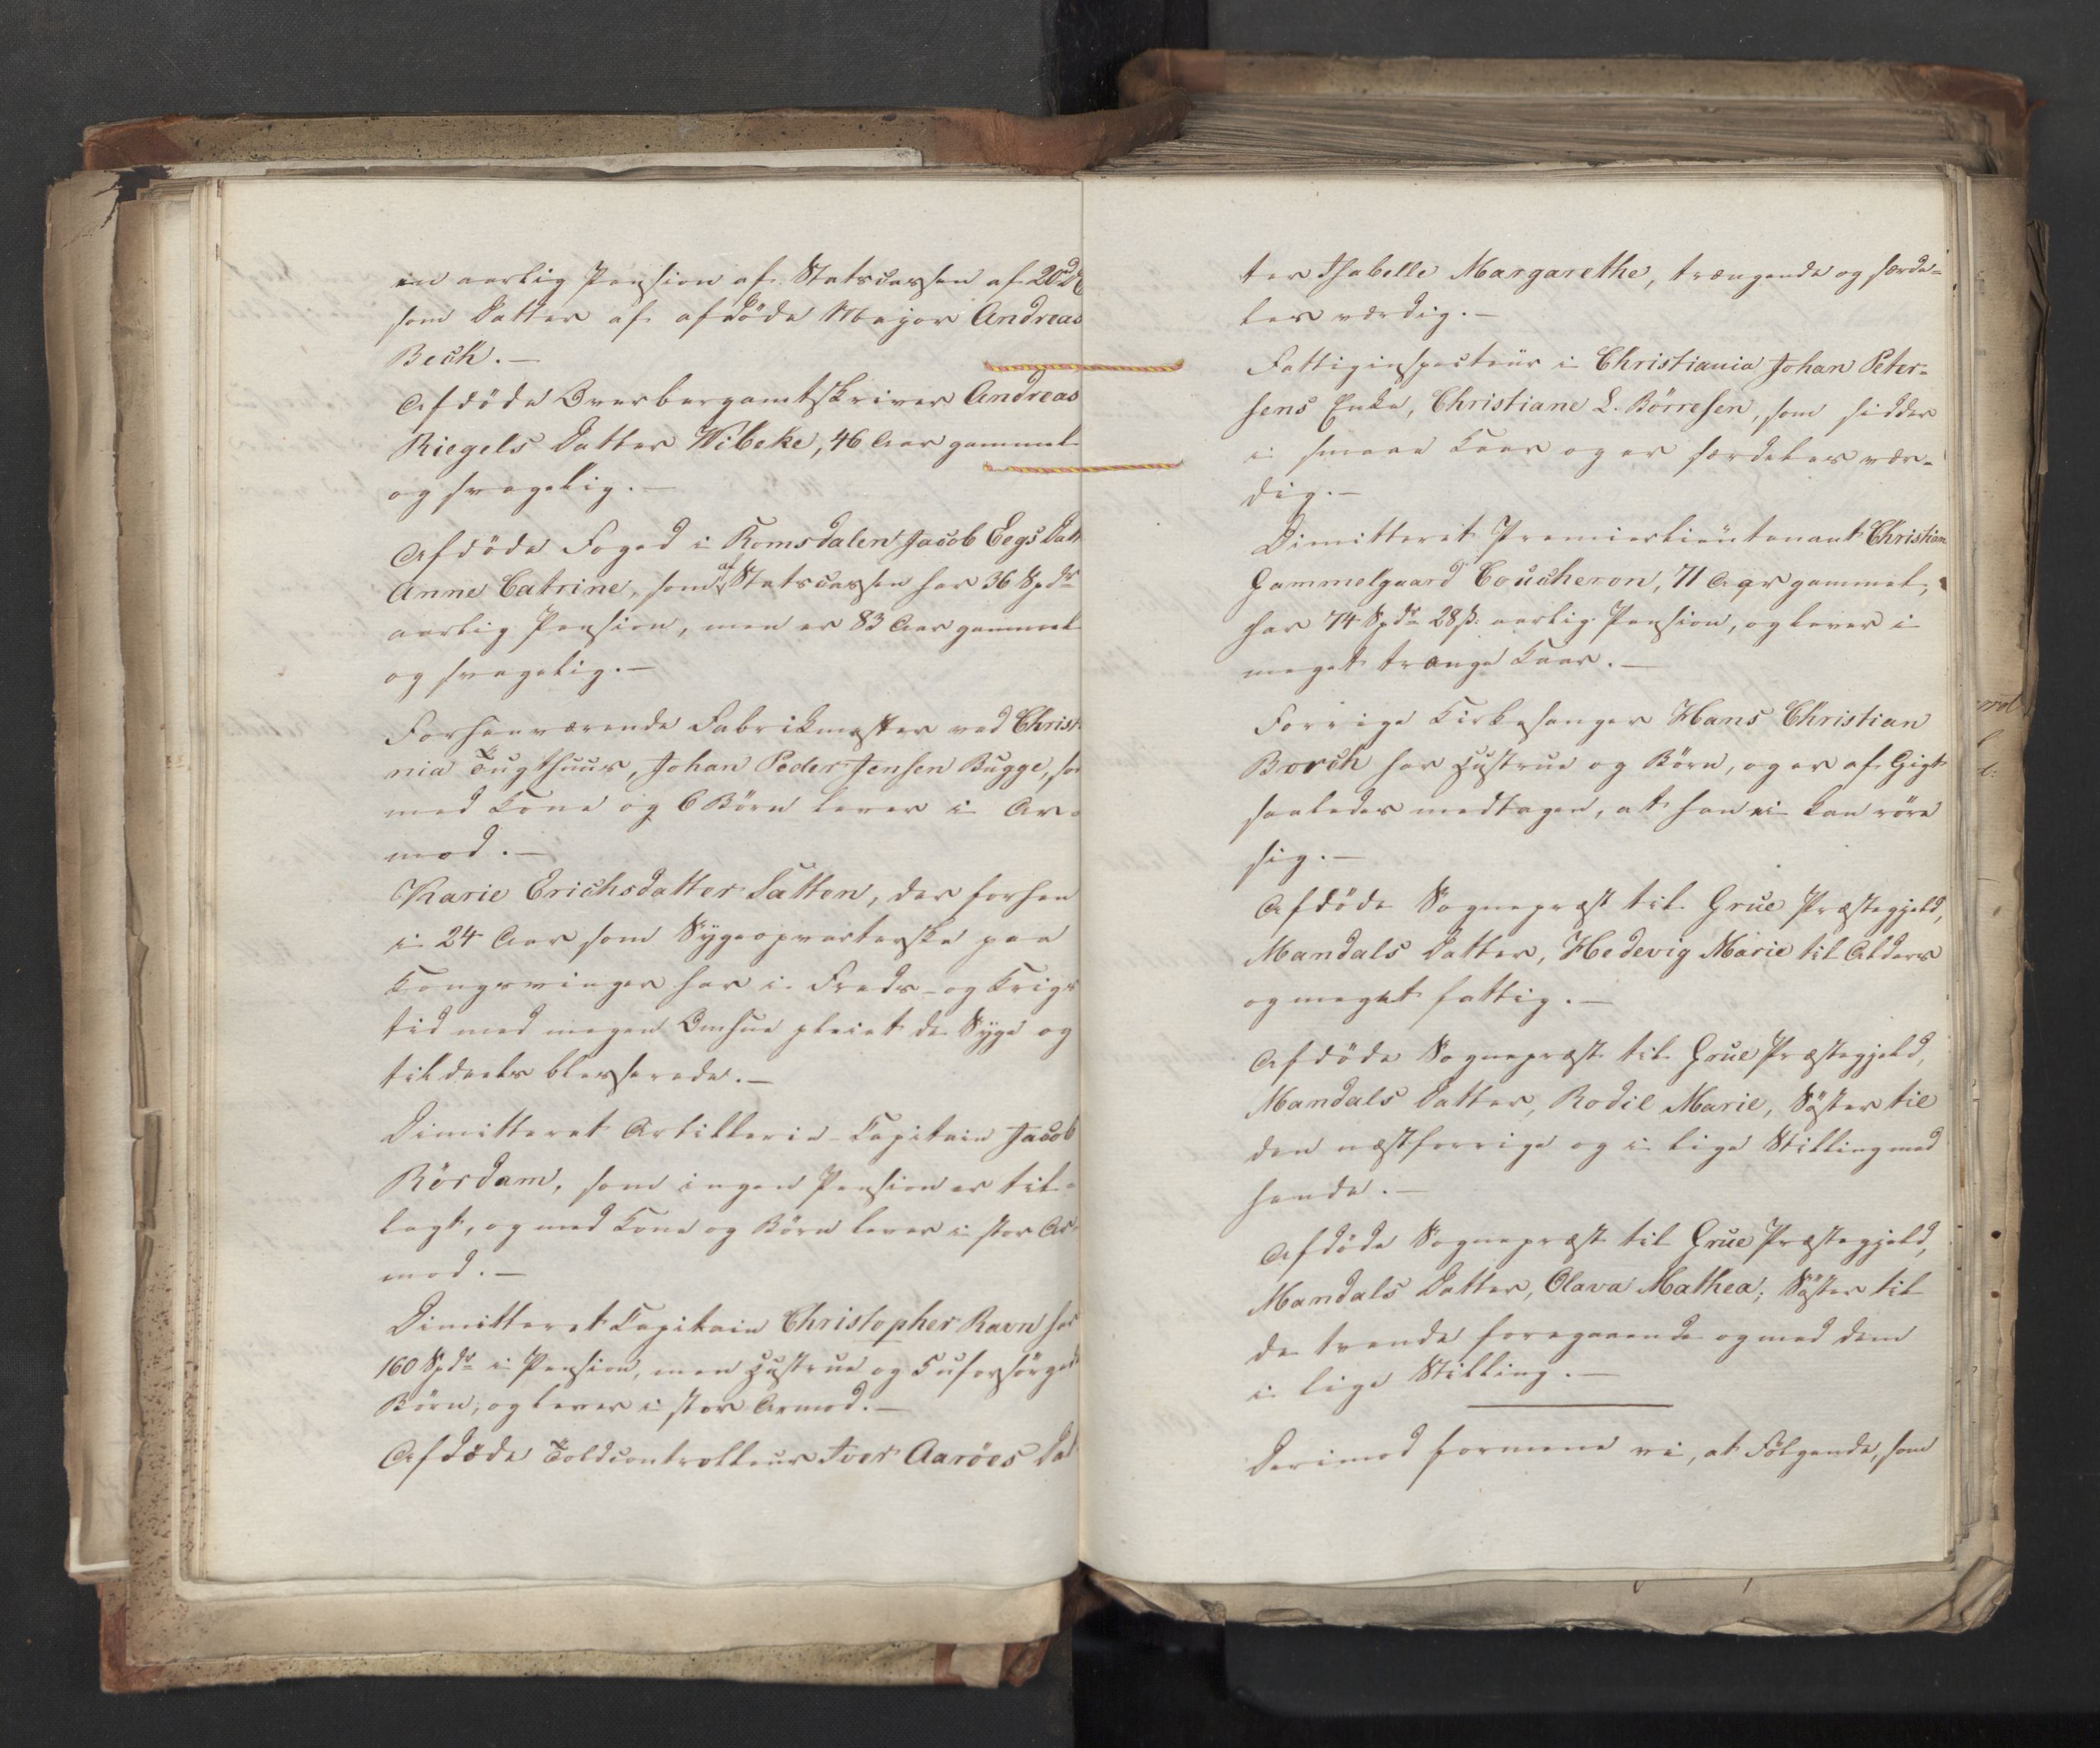 en aarlig Pension af Statscassen af 20 Spd
som Datter af afdöde Major Andreas
Bech.—
Afdöde Overbergamtskriver Andreas
Riegels Datter Wibeke, 46 Aar gammel
og svagelig.—
Afdöde Foged i Romsdalen Jacob Eegs Datt
Anne Catrine, som af Statscassen har 36 Spdr
aarlig Pension, men er 83 Aar gammel
og svagelig.—
Forhenværende Fabrikmester ved Christ
nia Tugthuus, Johan Peder Jensen Bugge, so
med Kone og 6 Börn lever i Ar=
mod.—
Marie Erichsdatter Satten, der forhen
i 24 Aar som Sygeopvarterske paa
Kongsvinger har i Freds- og Krigs
tid med megen Omhue pleiet de Syge og
tildeels blesserede.—
Dimitteret Artillerie-Capitain Jacob
Rördam, som ingen Pension er til=
lagt, og med Kone og Börn lever i stor Ar=
mod.—
Dimitteret Capitain Christopher Ravn har
160 Spdr i Pension, men Hustrue og 5 uforsörgede
Börn, og lever i stor Armod.—
Afdöde Toldcontrolleur Iver Aaröes Dat
ter Isabelle Margarethe, trængende og særde=
les værdig.—
Fattiginspecteur i Christiania Johan Peter=
sens Enke, Christiane L. Börresen, som sidder
i smaae Kaar og er særdeles vær=
dig.—
Dimitteret Premierlieutenant Christian
Gammelgaard Coucheron, 71 Aar gammel,
har 74 Spdr 28 ß. aarlig Pension, og lever i
meget trange Kaar.—
Forrige Kirkesanger Hans Christian
Borch har Hustrue og Börn, og er af Gigt
saaledes medtagen, at han ei kan röre
sig.—
Afdöde Sognepræst til Grue Præstegjeld,
Mandals Datter, Hedevig Marie til Alders
og meget fattig.—
Afdöde Sognepræst til Grue Præstegjeld,
Mandals Datter, Bodil Marie, Söster til
den næstforrige og i lige Stilling med
hende.—
Afdöde Sognepræst til Grue Præstegjeld,
Mandals Datter, Olava Mathea, Söster til
de tvende foregaaende og med dem
i lige Stilling.—
Derimod formene vi, at Fölgende, som